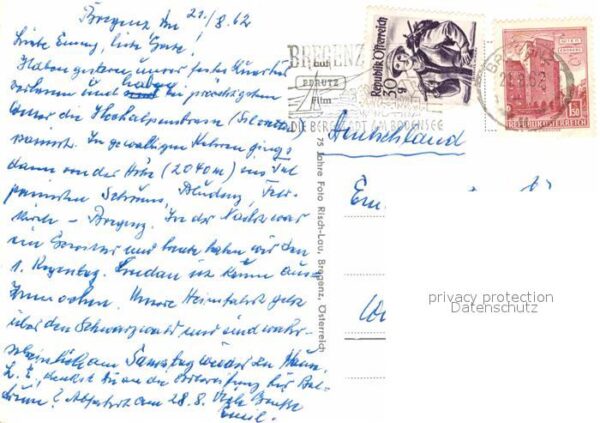 Bregenz den 21./8.62
Liebe Emmy, liebe Grete!
Haben gestern unser festes Quartier
verlassen und haben bei prachtvollem
Wetter die Hochalpenstrasse (Silvretta)
passiert. In gewaltigen Kehren ging's
dann von der Höhe (2040m) ins Tal
passierten Schruns, Bludenz, Feld-
kirch – Bregenz. In der Nacht war
ein Gewitter und heute haben wir den
1. Regentag. Lindau ist kaum aus-
zumachen. Unsere Heimfahrt geht
über den Schwarzwald und sind wahr-
scheinlich am Samstag wieder zu Hause.
L. E., denkst Du an die
? Abfahrt am 28.8. Viele Grüße
Emil.
BREGENZ
auf
BERUTZ
Film
DIE BERGSTADT AM BODENSEE
Republik Österreich
30
g
BREGENZ
21.8.62
1.50
REPUBLIK ÖSTERREICH
Deutschland
75 Jahre Foto Risch-Lau, Bregenz, Österreich
privacy protection
Datenschutz